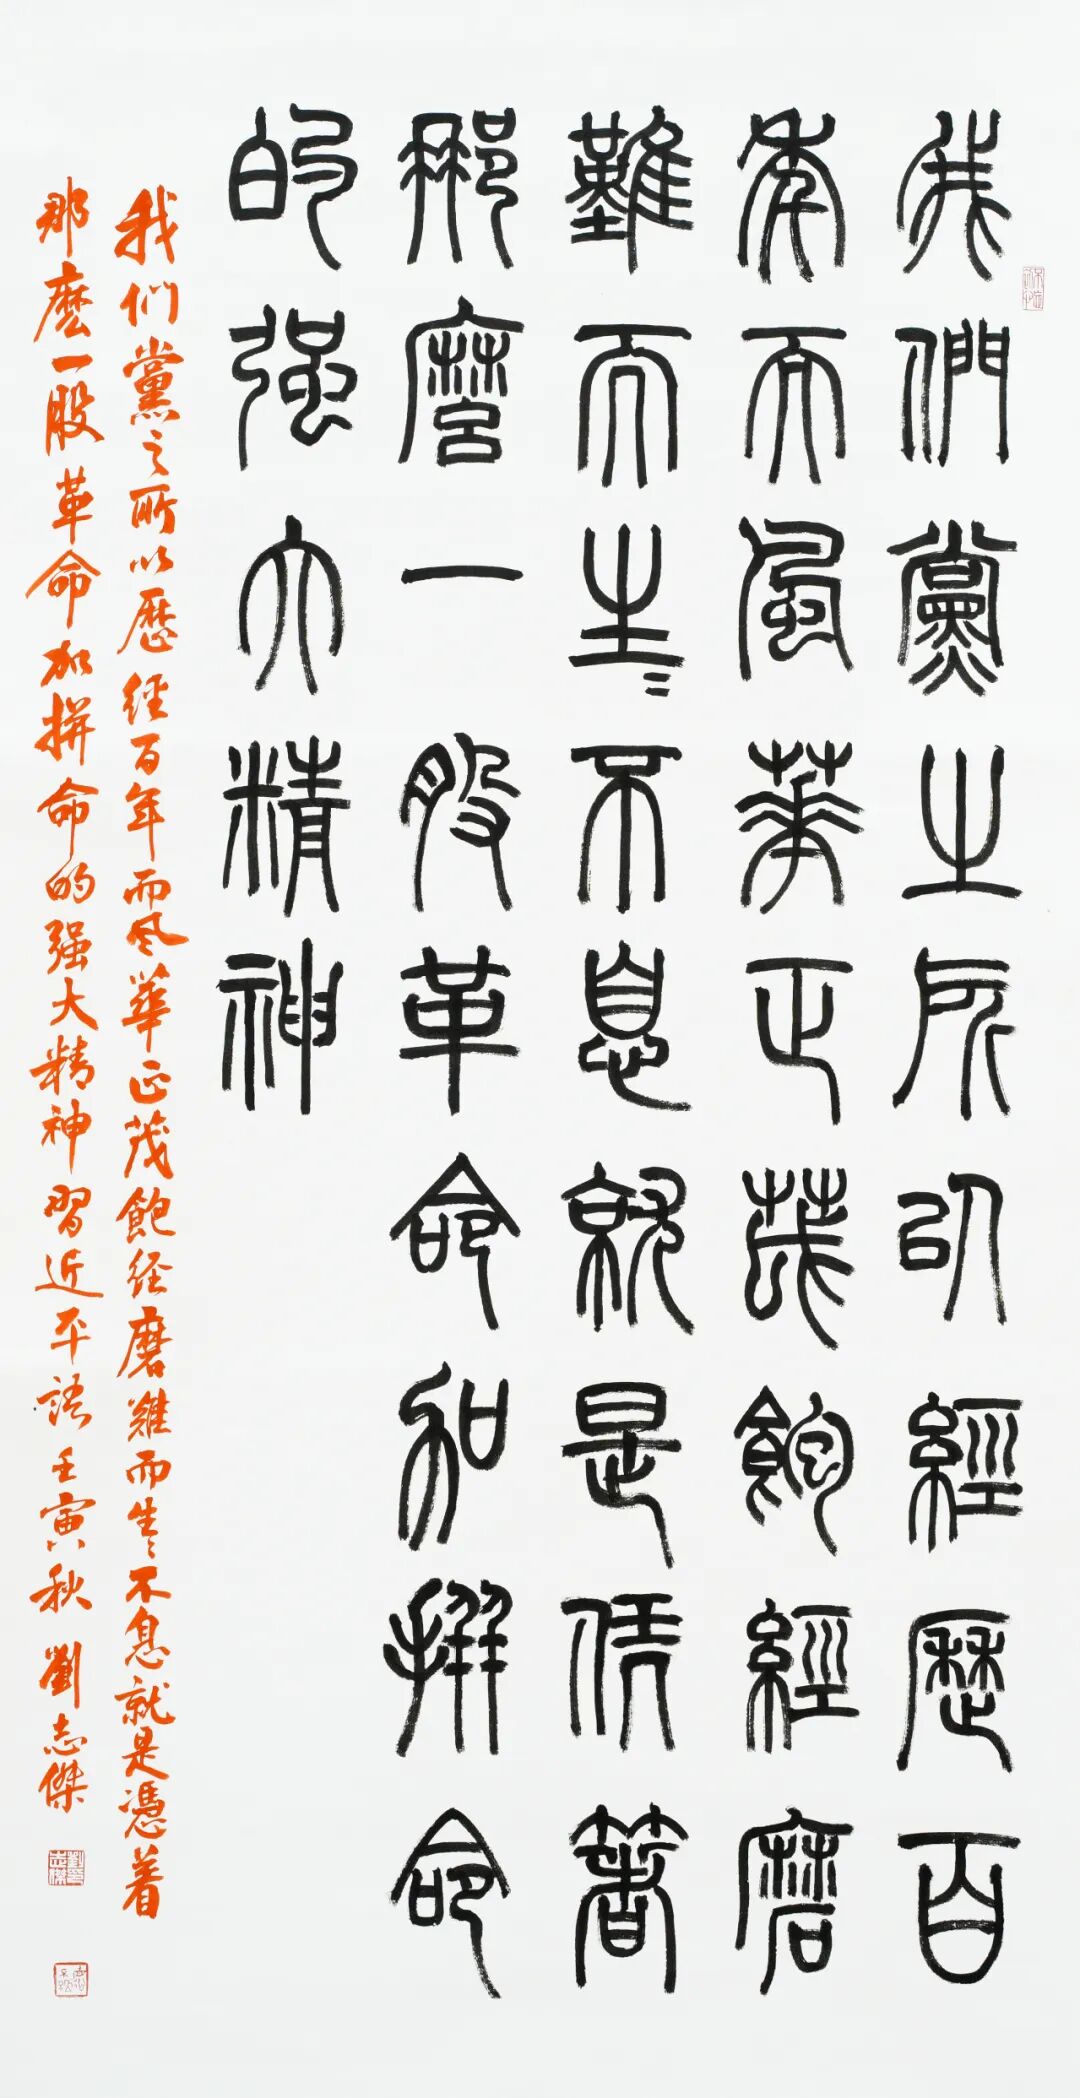 我們黨之所以經歷百
年而風華正茂飽經磨
難而生〻不息就是凭著
那麿一股革命加拼命
的强大精神
我们黨之所以歷经百年而风華正茂飽经磨難而生〻不息就是憑着
那麽一股革命加拼命的强大精神習近平語壬寅秋 劉志傑